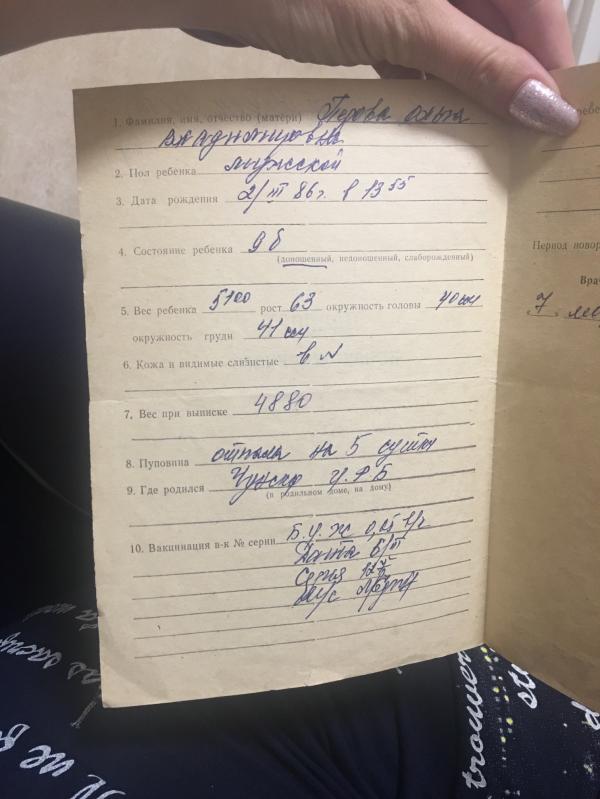 1. Фамилия, имя, отчество (матери) Перова Ольга
Владимировна
2. Пол ребенка мужской
3. Дата рождения 2/III 86г. в 13 55
4. Состояние ребенка 9б
(доношенный, недоношенный, слаборожденный)
5. Вес ребенка 5100 рост 63 окружность головы 40см
окружность груди 41 см
6. Кожа и видимые слизистые в N
7. Вес при выписке 4880
8. Пуповина отпала на 5 сутки
9. Где родился Ц.Р.Б
(в родильном доме, на дому)
10. Вакцинация в-к № серии Б.Ц.Ж 0,05 в/к
Дата 6/III
Серия
Период новор
Врач
7
trouver